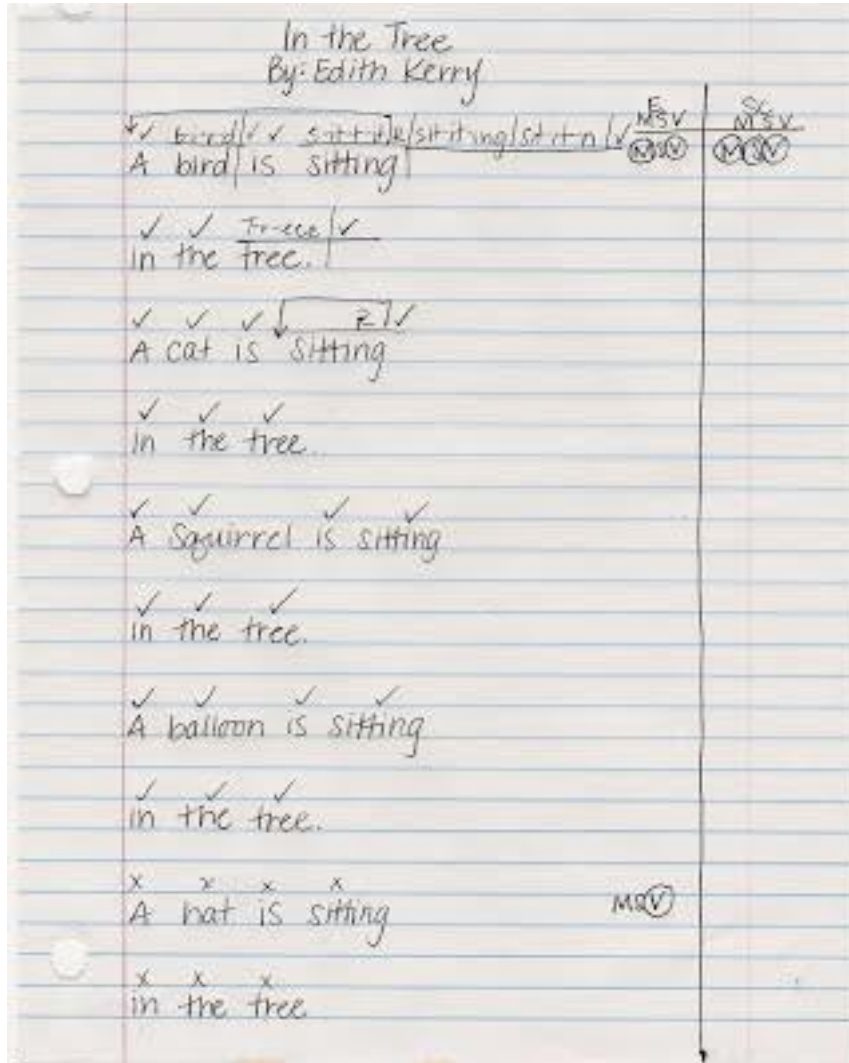 In the Tree
By: Edith Kerry
E SC
MSV MSV
✓✓ b-ir-d|✓ ✓ s-i-t-t-i|R|sit-it-ing|sit-it-n|✓ MSV MSV
A bird is sitting
✓ ✓ Tr-eee|✓
in the tree.
✓ ✓ ✓ R|✓
A cat is sitting
✓ ✓ ✓
in the tree.
✓ ✓ ✓ ✓
A Squirrel is sitting
✓ ✓ ✓
in the tree.
✓ ✓ ✓ ✓
A balloon is sitting
✓ ✓ ✓
in the tree.
x x x x
A hat is sitting MSV
x x x
in the tree